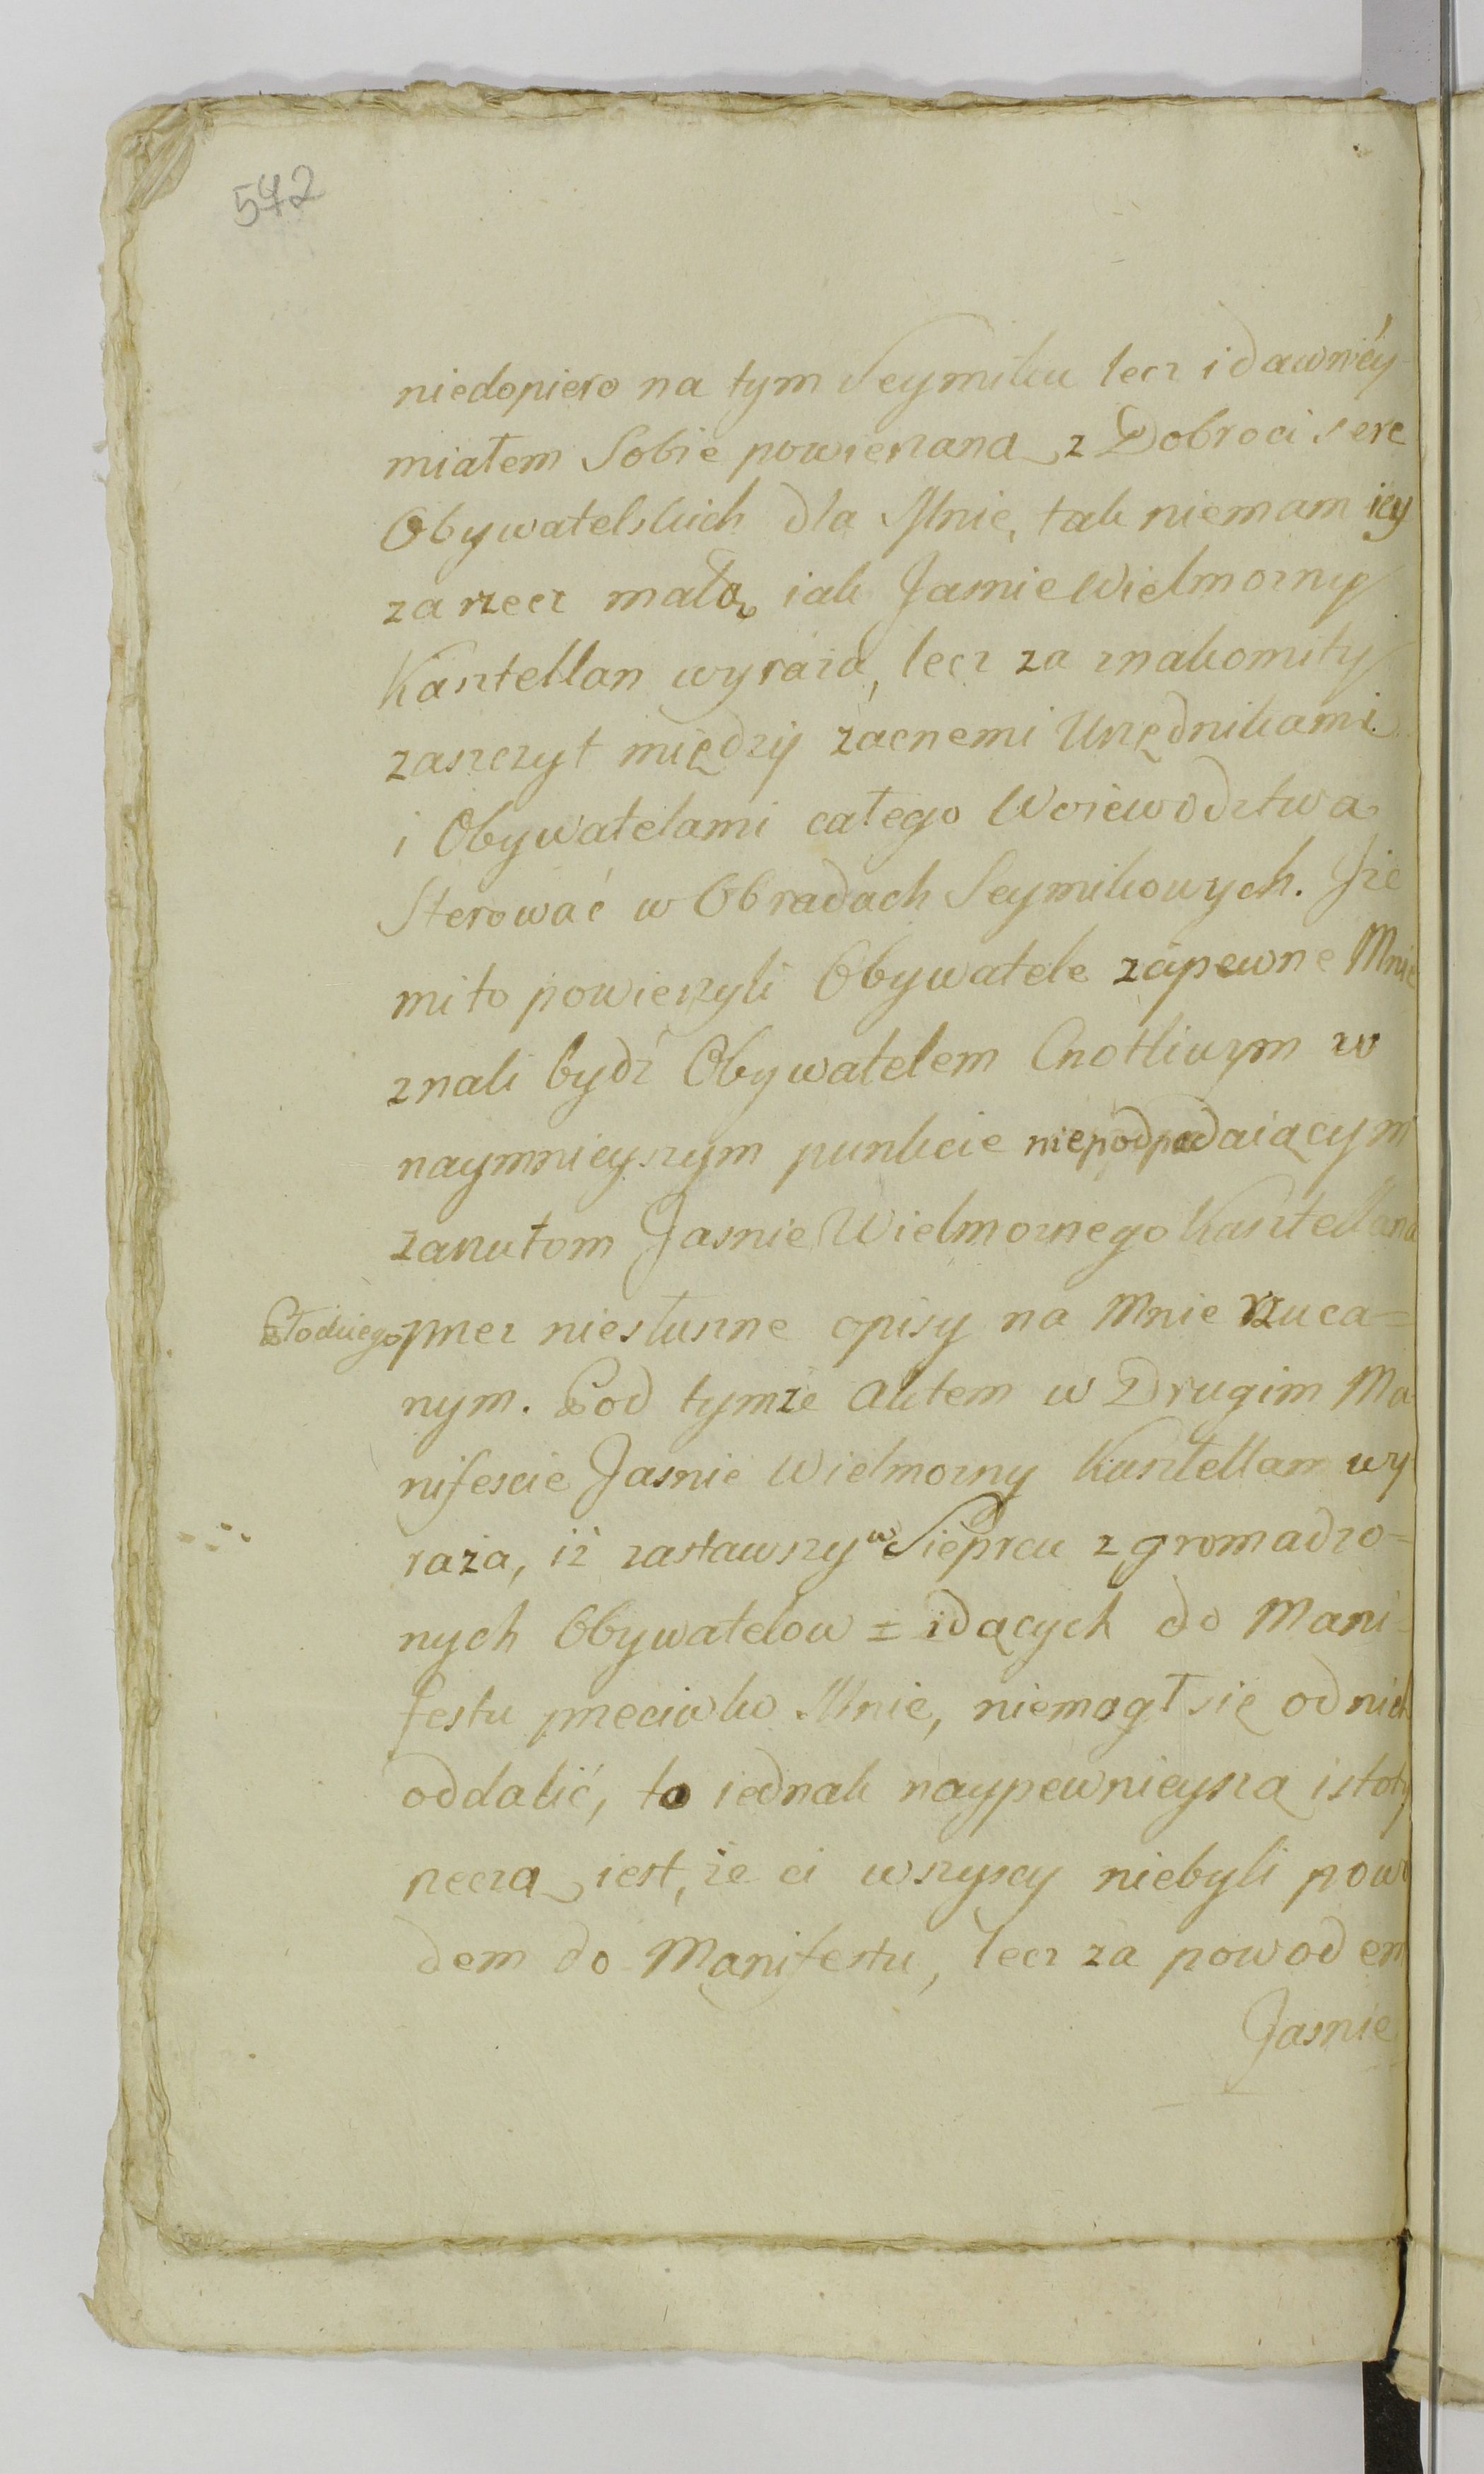 572
niedopiero na tym Seymiku lecz i dawniéy
miałem Sobie powierzaną z Dobroci serc
Obywatelskich dla Mnie, tak niemam iey
za rzecz małą iak Jasnie Wielmozny
Kasztellan wyraża, lecz za znakomity
zaszczyt między zacnemi Urzędnikami
i Obywatelami całego Woiewodztwa
Sterować w Obradach Seymikowych. Że
mi to powierzyli Obywatele zapewne Mnie
znali bydź Obywatelem Cnotliwym w
naymnieyszym punkcie niepodpadaiącym
zarzutom Jasnie Wielmoznego Kasztellana
Płockiego przez niesłuszne opisy na Mnie rzuca=
nym. Pod tymże Aktem w Drugim Ma
nifescie Jasnie Wielmozny Kasztellan wy
raża, iż zastawszy w Sieprcu zgromadzo=
nych Obywatelow = idących do Mani=
festu przeciwko Mnie, niemogł się od nich
oddalić, to iednak naypewnieyszą istoty
rzeczą iest, że ci wszyscy niebyli powo
dem do Manifestu, lecz za powodem
Jasnie